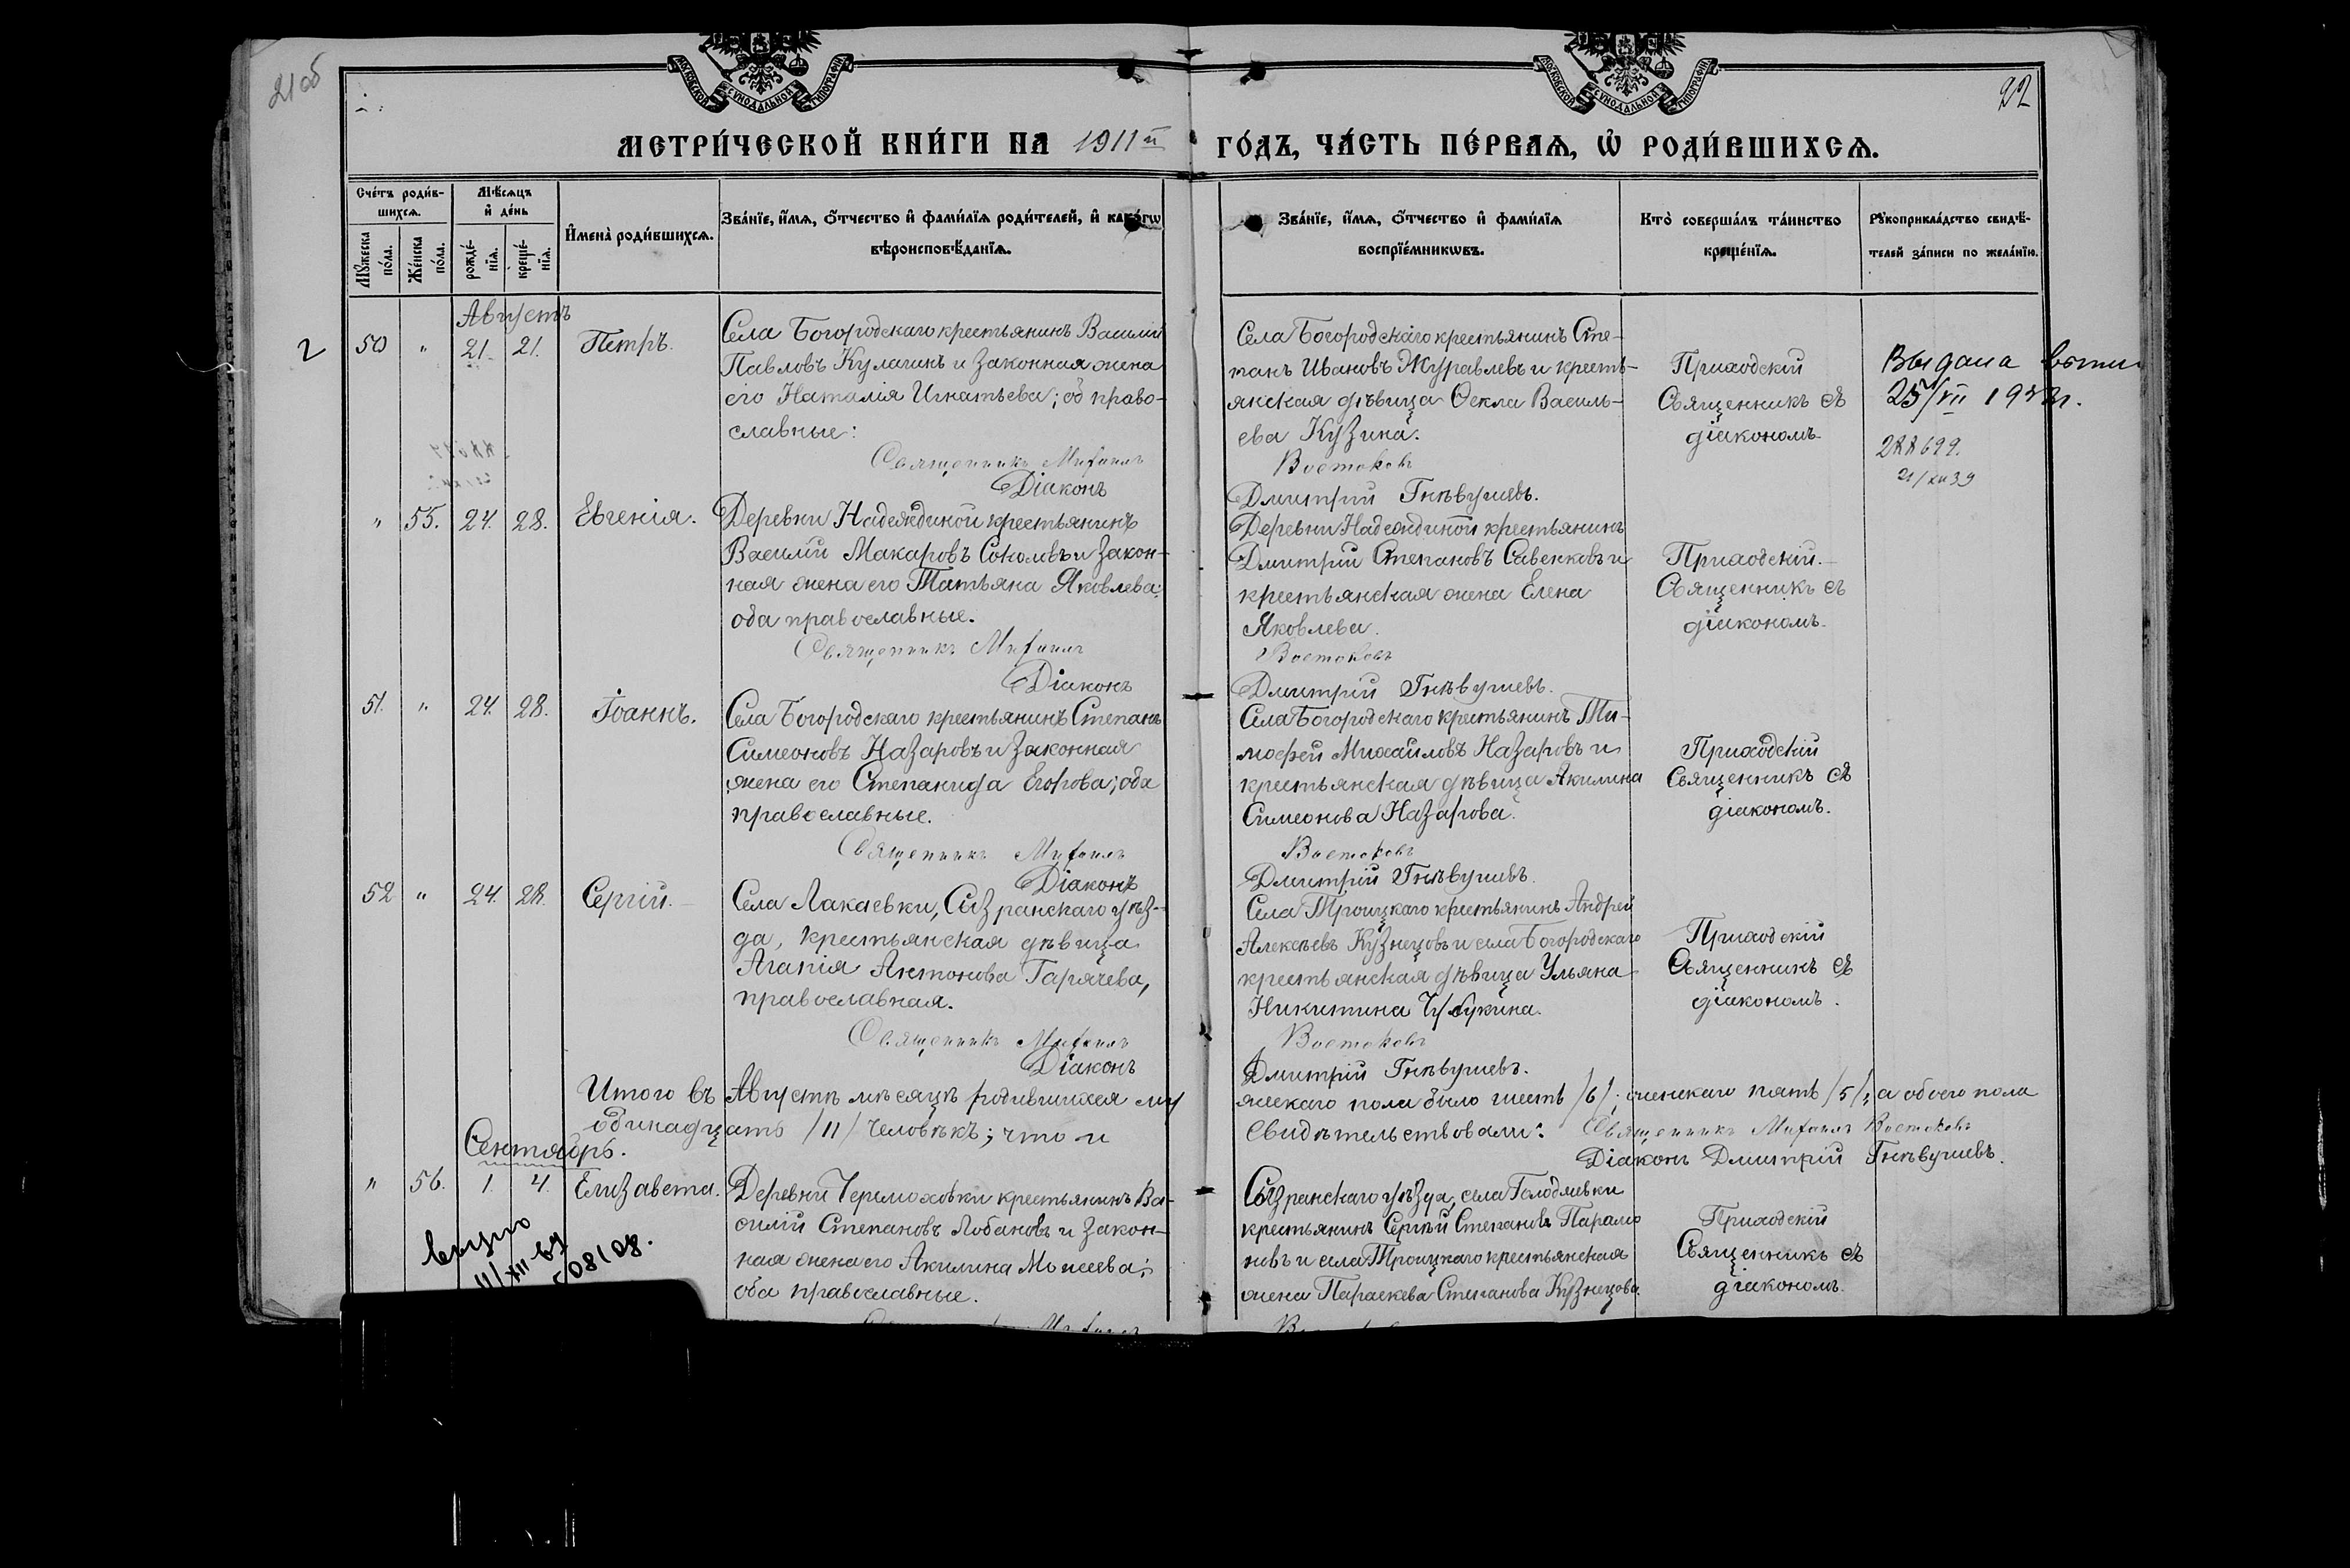 21 об
22
МОСКОВСКОЙ СѴНОДАЛЬНОЙ ТИПОГРАФІИ
МОСКОВСКОЙ СѴНОДАЛЬНОЙ ТИПОГРАФІИ
МЕТРИ́ЧЕСКОЙ КНИ́ГИ НА 1911й ГО́ДЪ, ЧА́СТЬ ПЕ́РВАѦ, Ѡ҆ РОДИ́ВШИХСѦ.
Сче́тъ роди́в-
шихсѧ.
Мꙋ́жеска по́ла.
Же́нска по́ла.
Мѣ́сѧцъ
и҆ де́нь
рожде́-
нїѧ.
креще́-
нїѧ.
И҆мена̀ роди́вшихсѧ.
Зва́нїе, и҆́мѧ, ѻ҆́тчество и҆ фами́лїѧ роди́телей, и҆ како́гѡ
вѣроисповѣ́данїѧ.
Зва́нїе, и҆́мѧ, ѻ҆́тчество и҆ фами́лїѧ
воспрїе́мникѡвъ.
Кто̀ соверша́лъ та́инство
креще́нїѧ.
Рꙋкоприкла́дство свидѣ́-
телей за́писи по жела́нїю.
Августъ
2
50 " 21. 21. Петръ.
Села Богородскаго крестьянинъ Василій
Павловъ Кулагинъ и законная жена
его Наталія Игнатьева; об право-
славные:
Священникъ Михаилъ
Діаконъ
Села Богородскаго крестьянинъ Сте-
панъ Ивановъ Журавлевъ и кресть-
янская дѣвица Ѳекла Василь-
ева Кузина.
Востоковъ
Дмитрій Гнѣвушевъ.
Приходскій
Священникъ съ
діакономъ.
Выдана
25/VII
288699.
21/XII 39
" 55. 24. 28. Евгенія.
Деревни Надеждиной крестьянинъ
Василій Макаровъ Соколовъ и закон-
ная жена его Татьяна Яковлева;
оба православные.
Священникъ Михаилъ
Діаконъ
Деревни Надеждиной крестьянинъ
Дмитрій Степановъ Савенковъ и
крестьянская жена Елена
Яковлева.
Востоковъ
Дмитрій Гнѣвушевъ.
Приходскій
Священникъ съ
діакономъ.
51. " 24. 28. Іоаннъ.
Села Богородскаго крестьянинъ Степанъ
Симеоновъ Назаровъ и законная
жена его Степанида Егорова; оба
православные.
Священникъ Михаилъ
Діаконъ
Села Богородскаго крестьянинъ Ти-
мофей Михайловъ Назаровъ и
крестьянская дѣвица Акилина
Симеонова Назарова.
Востоковъ
Дмитрій Гнѣвушевъ.
Приходскій
Священникъ съ
діакономъ.
52 " 24. 28. Сергій.
Села Лакаевки, Сызранскаго уѣз-
да, крестьянская дѣвица
Агапія Антонова Гарячева,
православная.
Священникъ Михаилъ
Діаконъ
Села Троицкаго крестьянинъ Андрей
Алексѣевъ Кузнецовъ и села Богородскаго
крестьянская дѣвица Ульяна
Никитина Чубукина.
Востоковъ
Дмитрій Гнѣвушевъ.
Приходскій
Священникъ съ
діакономъ.
Итого въ Августѣ мѣсяцѣ родившихся му жескаго пола было шесть /6/; женскаго пять /5/, а обоего пола
одинадцать /11/ человѣкъ; что и свидѣтельствовали: Священникъ Михаилъ Востоковъ
Діаконъ Дмитрій Гнѣвушевъ.
Сентябрь.
" 56. 1. 4. Елизавета.
Деревни Черемоховки крестьянинъ Ва-
силій Степановъ Лобановъ и закон-
ная жена его Акилина Моисеева;
оба православные.
Сызранскаго уѣзда, села Голодяевки
крестьянинъ Сергѣй Степановъ Парамо
новъ и села Троицкаго крестьянская
жена Параскева Степанова Кузнецова.
Приходскій
Священникъ съ
діакономъ.
11/XII-67
508108.